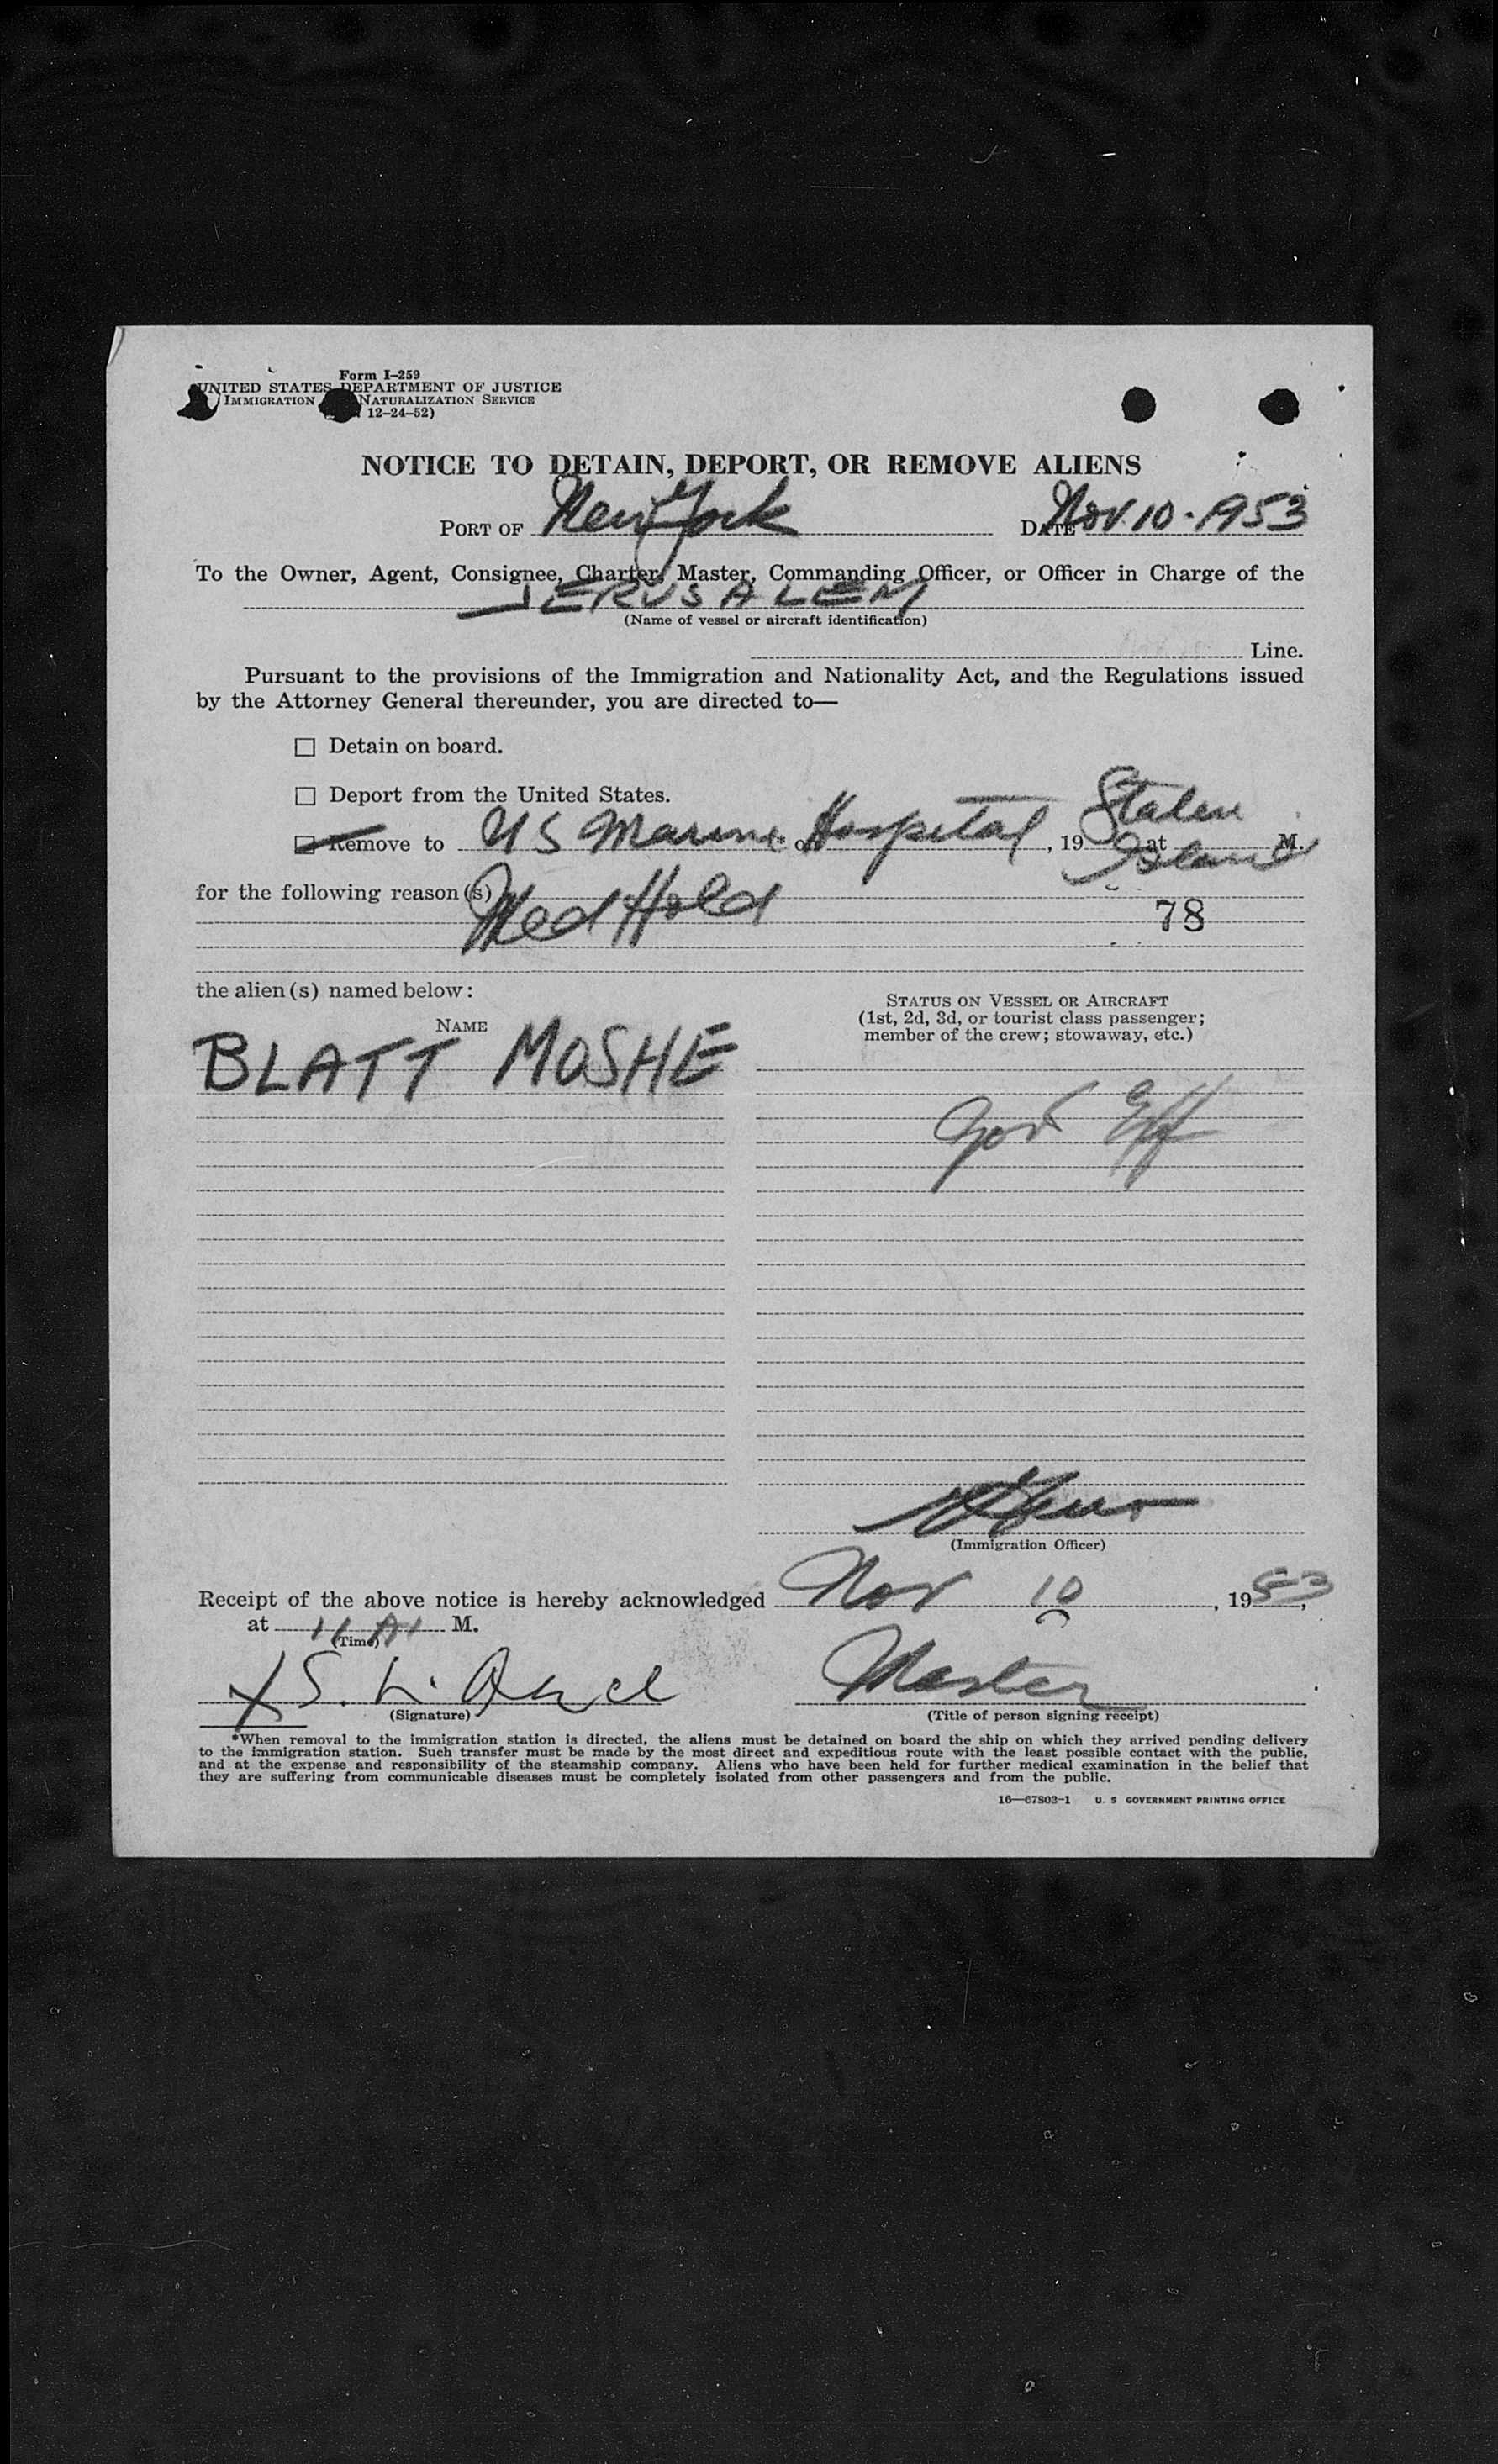 Form I-259
UNITED STATES DEPARTMENT OF JUSTICE
IMMIGRATION NATURALIZATION SERVICE
12-24-52)
NOTICE TO DETAIN, DEPORT, OR REMOVE ALIENS
PORT OF New York DATE Nov. 10 - 1953
To the Owner, Agent, Consignee, Charter, Master, Commanding Officer, or Officer in Charge of the
JERUSALEM
(Name of vessel or aircraft identification)
Line.
Pursuant to the provisions of the Immigration and Nationality Act, and the Regulations issued
by the Attorney General thereunder, you are directed to—
☐ Detain on board.
☐ Deport from the United States.
Remove to US Marine Hospital, 19 Staten Island at M.
for the following reason(s) Med Hold
78
the alien(s) named below:
NAME
STATUS ON VESSEL OR AIRCRAFT
(1st, 2d, 3d, or tourist class passenger;
member of the crew; stowaway, etc.)
BLATT MOSHE
(Immigration Officer)
Receipt of the above notice is hereby acknowledged Nov 10, 1953,
at 11 A M.
(Time)
Master
(Signature) (Title of person signing receipt)
*When removal to the immigration station is directed, the aliens must be detained on board the ship on which they arrived pending delivery
to the immigration station. Such transfer must be made by the most direct and expeditious route with the least possible contact with the public,
and at the expense and responsibility of the steamship company. Aliens who have been held for further medical examination in the belief that
they are suffering from communicable diseases must be completely isolated from other passengers and from the public.
16—67803-1 U. S. GOVERNMENT PRINTING OFFICE